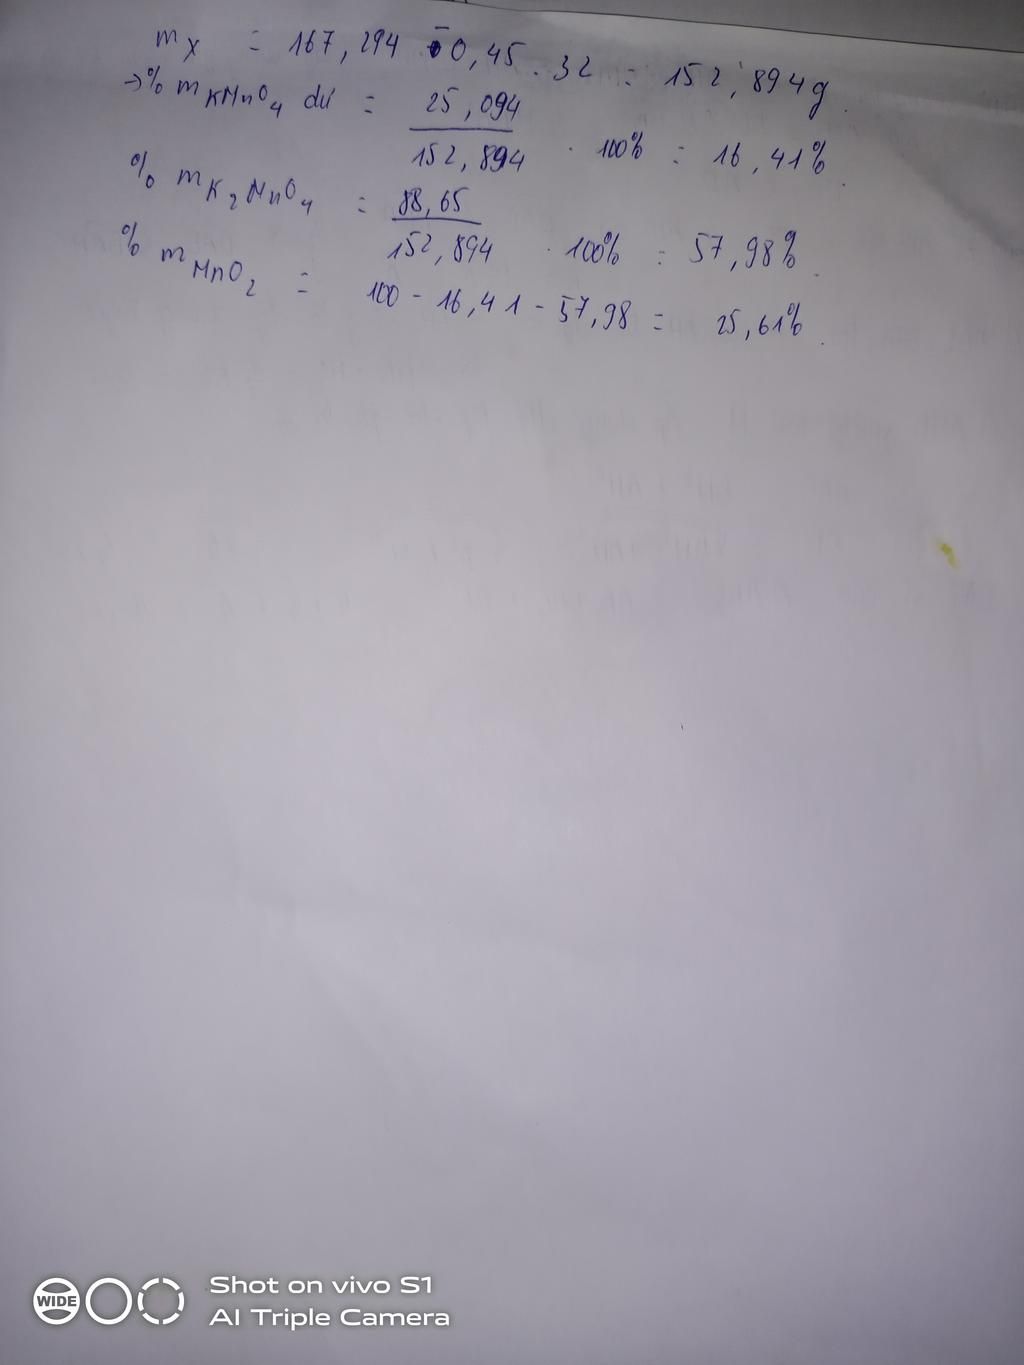 mX = 167,294 - 0,45 . 32 = 152,894g.
→ % mKMnO4 dư = 25,094 / 152,894 . 100% = 16,41%.
% mK2MnO4 = 88,65 / 152,894 . 100% = 57,98%.
% mMnO2 = 100 - 16,41 - 57,98 = 25,61%.
WIDE
Shot on vivo S1
AI Triple Camera